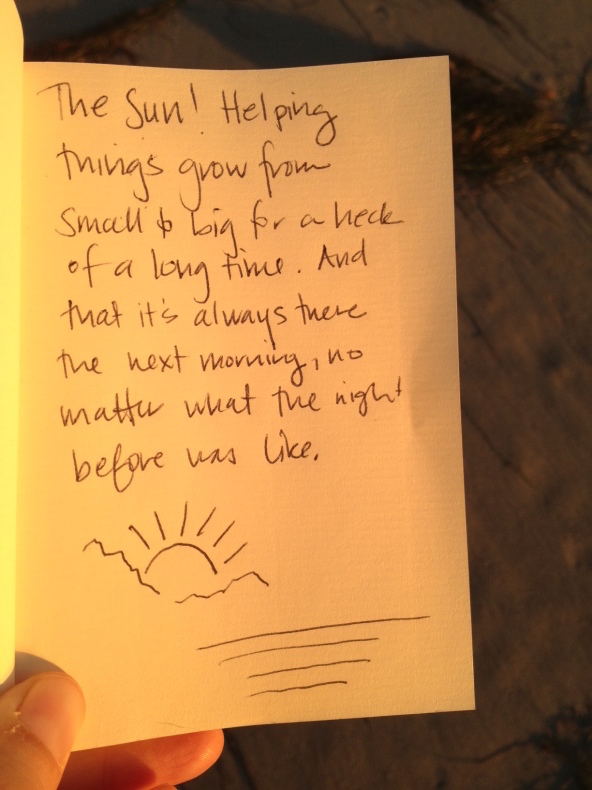 The Sun! Helping
things grow from
small to big for a heck
of a long time. And
that it's always there
the next morning, no
matter what the night
before was like.